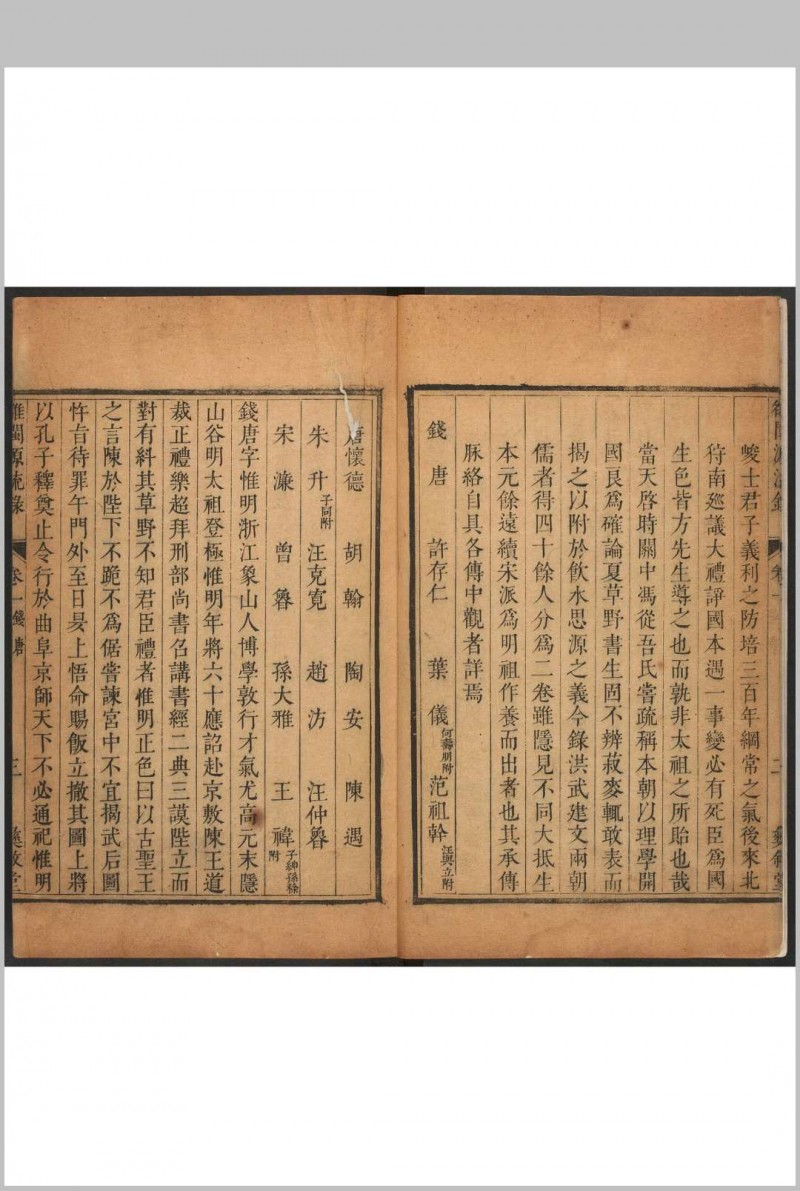 峻士君子義利之防培三百年綱常之氣後來北
狩南廵議大禮諍國本遇一事變必有死臣爲國
生色皆方先生導之也而孰非太祖之所貽也哉
當天啓時關中馮從吾氏嘗疏稱本朝以理學開
國良爲確論夏草野書生固不辨菽麥輒敢表而
揭之以附於飲水思源之義今錄洪武建文兩朝
儒者得四十餘人分爲二卷雖隱見不同大抵生
本元餘遠續宋派爲明祖作養而出者也其承傳
脉絡自具各傳中觀者詳焉
錢唐 許存仁 葉儀何壽朋附 范祖幹汪與立附
唐懷德 胡翰 陶安 陳遇
朱升子同附 汪克寬 趙汸 汪仲魯
宋濂 曾魯 孫大雅 王禕子紳孫稌附
錢唐字惟明浙江象山人博學敦行才氣尤高元末隱
山谷明太祖登極惟明年將六十應詔赴京敷陳王道
裁正禮樂超拜刑部尚書召講書經二典三謨陛立而
對有糾其草野不知君臣禮者惟明正色曰以古聖王
之言陳於陛下不跪不爲倨嘗諫宮中不宜揭武后圖
忤旨待罪午門外至日昃上悟命賜飯立撤其圖上將
以孔子釋奠止令行於曲阜京師天下不必通祀惟明
雒閩源流錄 卷一 錢唐 三 彝敘堂